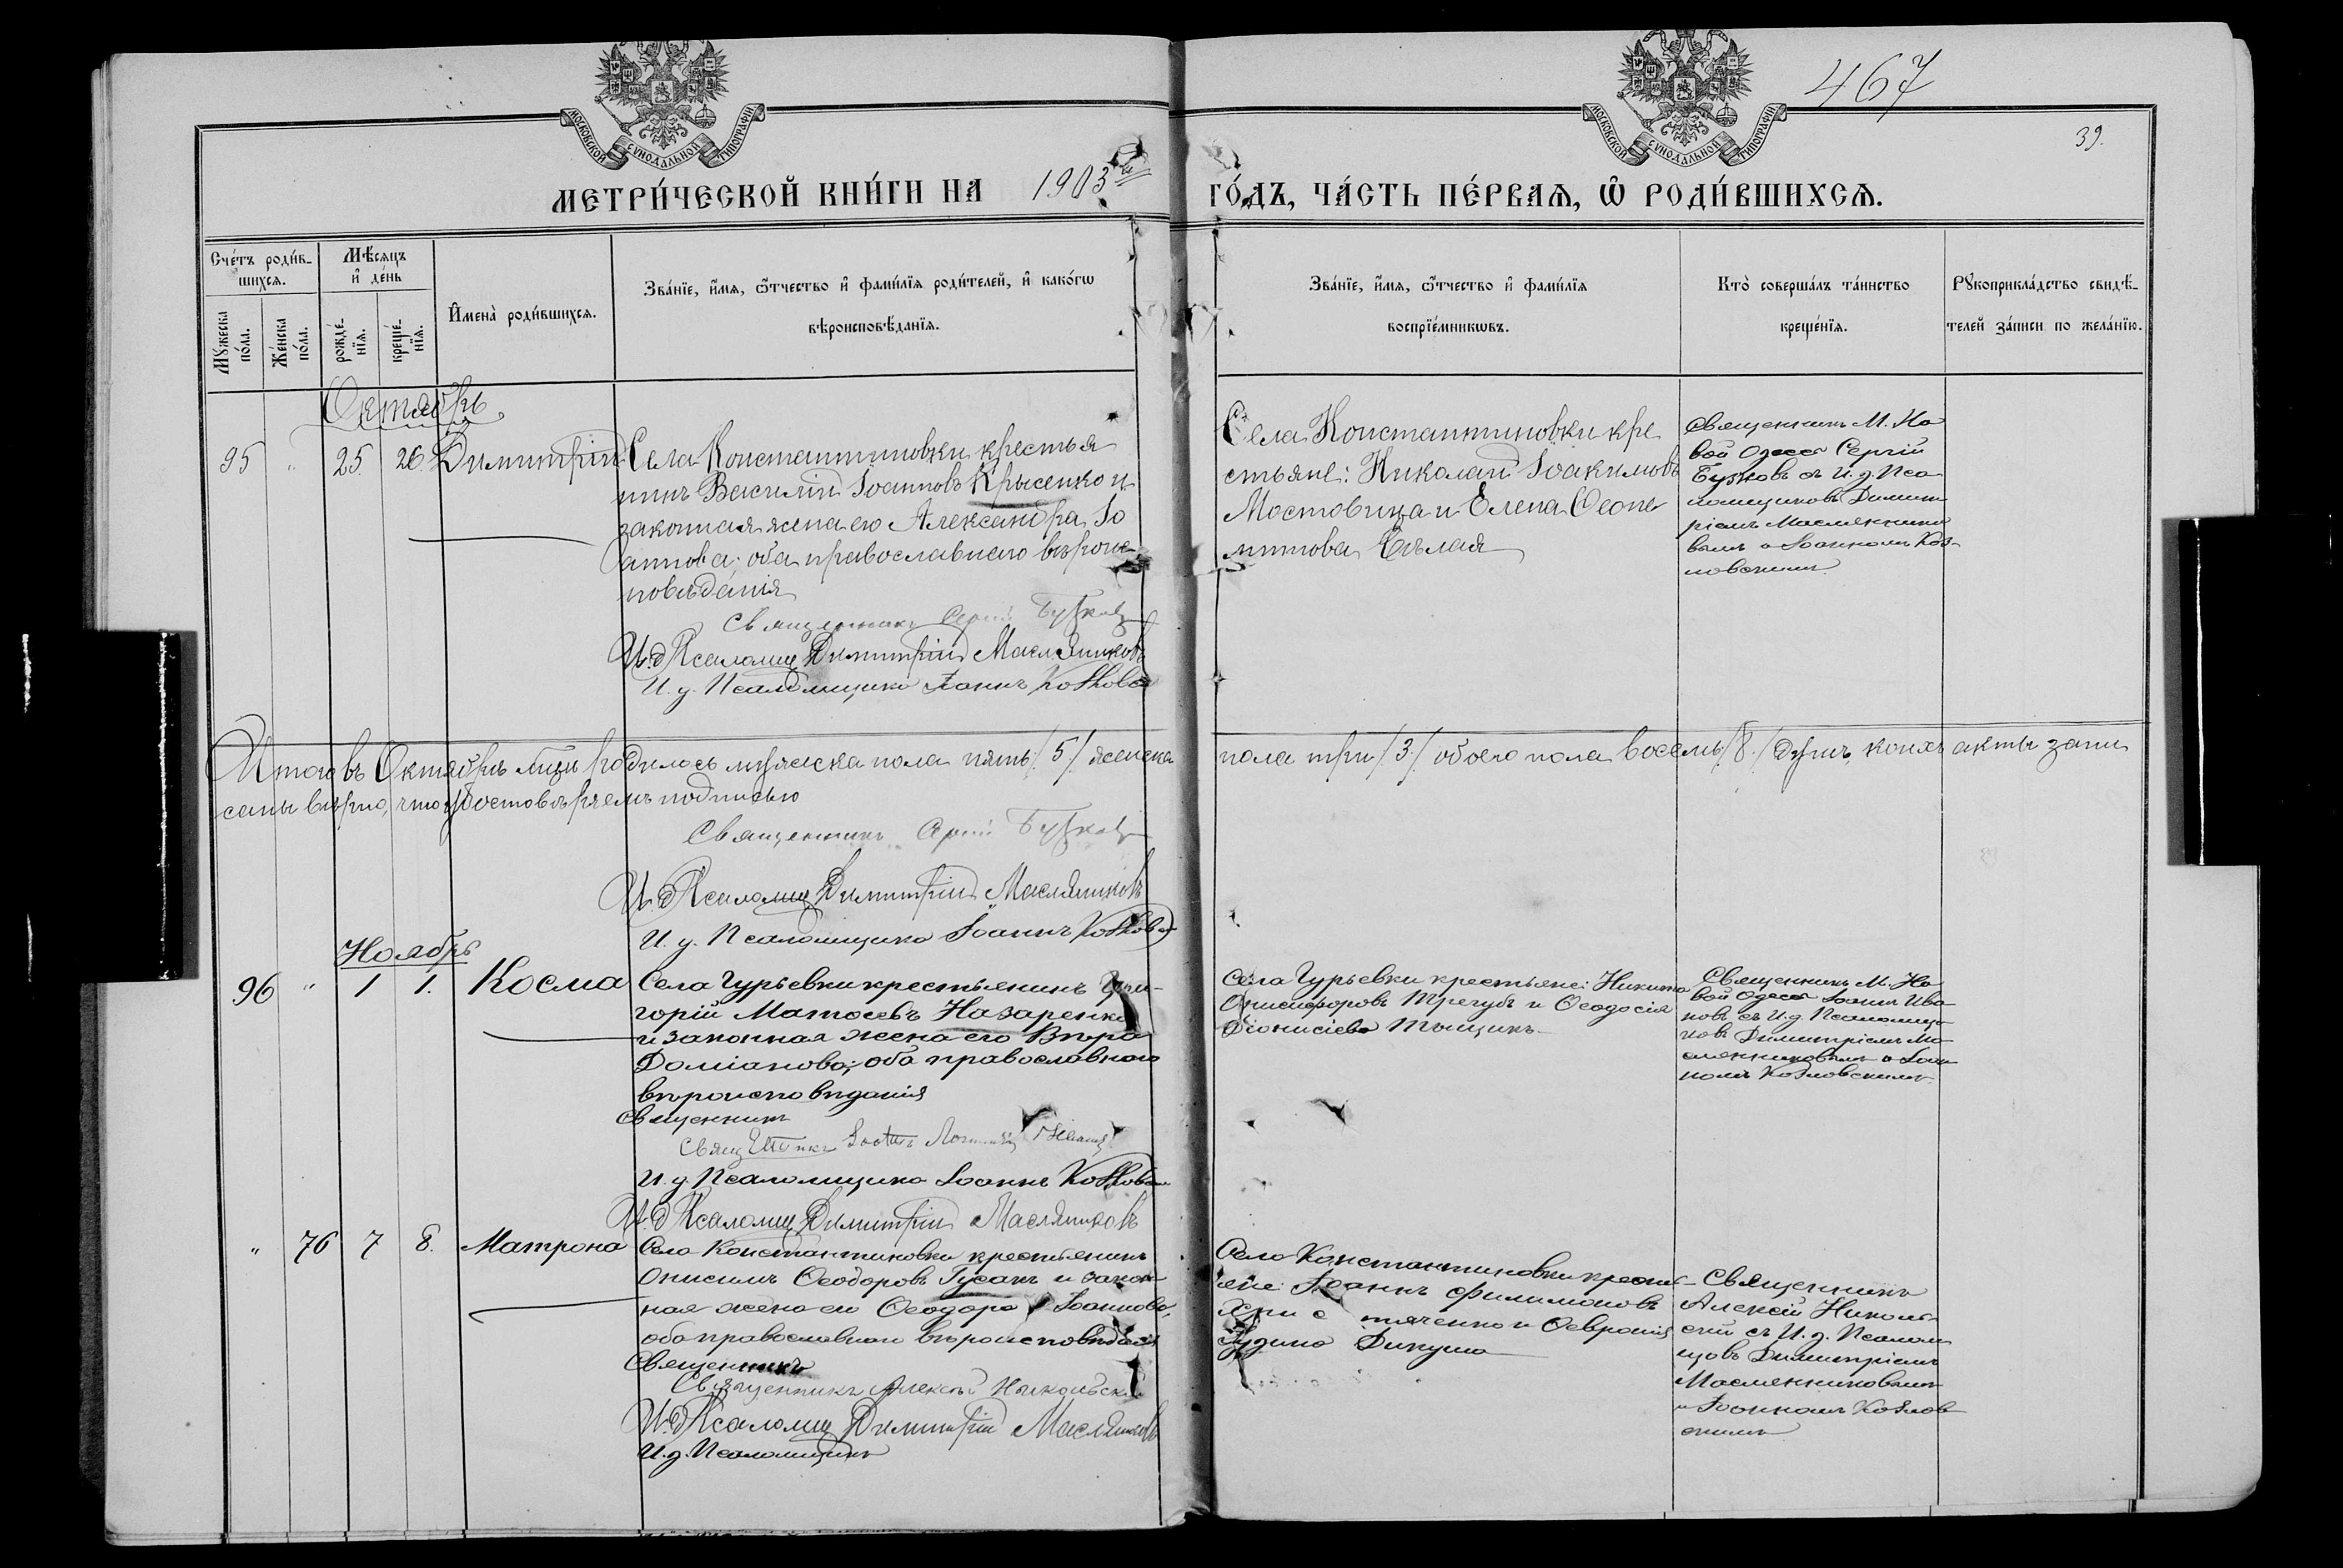 МОСКОВСКОЙ СѴНОДАЛЬНОЙ ТИПОГРАФІИ
МОСКОВСКОЙ СѴНОДАЛЬНОЙ ТИПОГРАФІИ
467
39.
МЕТРИ́ЧЕСКОЙ КНИ́ГИ НА 1903 ГО́ДЪ, ЧА́СТЬ ПЕ́РВАѦ, Ѡ РОДИ́ВШИХСѦ.
Сче́тъ роди́в-
шихсѧ.
Мꙋ́жеска по́ла.
Же́нска по́ла.
Мѣ́сѧцъ
и҆ де́нь
рожде́-
нїѧ.
креще́-
нїѧ.
И҆мена̀ роди́вшихсѧ.
Зва́нїе, и҆́мѧ, ѻ҆́тчество и҆ фами́лїѧ роди́телей, и҆ како́гѡ
вѣроисповѣ́данїѧ.
Зва́нїе, и҆́мѧ, ѻ҆́тчество и҆ фами́лїѧ
воспрїе́мникѡвъ.
Кто̀ соверша́лъ та́инство
креще́нїѧ.
Рꙋкоприкла́дство свидѣ́-
телей за́писи по жела́нїю.
Октябрь
95 " 25. 26. Димитрій
Села Константиновки крестья
нинъ Василій Іоанновъ Крысенко и
законная жена его Александра Іо
аннова; оба православнаго вѣроис
повѣданія
Священникъ Сергій Бутковъ
И.д. Псаломщ Димитрій Маслянниковъ
И. д. Псаломщика Іоаннъ Козлов
Села Константиновки кре
стьяне: Николай Іоакимовъ
Мостовица и Елена
Бѣлая
Священникъ М. Но
вой Одессы Сергій
Бутковъ съ И. д. Пса
ломщиковъ Димит
ріемъ Маслянники
вымъ и Іоанномъ Коз-
ловскимъ.
Итого въ Октябрѣ мцѣ родилось мужеска пола пять /5/ женска пола три /3/ обоего пола восемь /8/ душъ, коихъ акты запи
саны вѣрно, что удостовѣряемъ подписью
Священникъ Сергій Бутковъ
И.д. Псаломщ Димитрій Маслянниковъ
И. д. Псаломщика Іоаннъ Козлов
Ноябрь
96 " 1 1. Косма
Села Гурьевки крестьянинъ Гри-
горій Матѳеевъ Назаренко
и законная жена его Вѣра
Доміанова; оба православнаго
вѣроисповѣданія
Священникъ
Священникъ Іоаннъ Ивановъ
И. д. Псаломщика Іоаннъ Козлов
И.д. Псаломщ Димитрій Маслянниковъ
Села Гурьевки крестьяне: Никита
Онисифоровъ Трегубъ и Ѳеодосія
Діонисіева Тыщикъ
Священникъ М. Но
вой Одессы Іоаннъ Ива
новъ съ И. д. Псаломщи
ковъ Димитріемъ Ма
слянниковымъ и Іоан
номъ Козловскимъ.
" 76 7 8. Матрона
Села Константиновки крестьянинъ
Онисимъ Ѳеодоровъ Гусакъ и закон
ная жена его Ѳеодора Іоаннова,
оба православнаго вѣроисповѣданія
Священникъ
Священникъ Алексѣй Никольскій
И.д. Псаломщ Димитрій Маслянниковъ
И.д. Псаломщикъ
Села Константиновки крестья
яне: Іоаннъ Филимоновъ
и Ѳевронія
Дикуша
Священникъ
Алексѣй Николь
скій съ И. д. Псалом
щовъ Димитріемъ
Маслянниковымъ
и Іоанномъ Козлов
скимъ